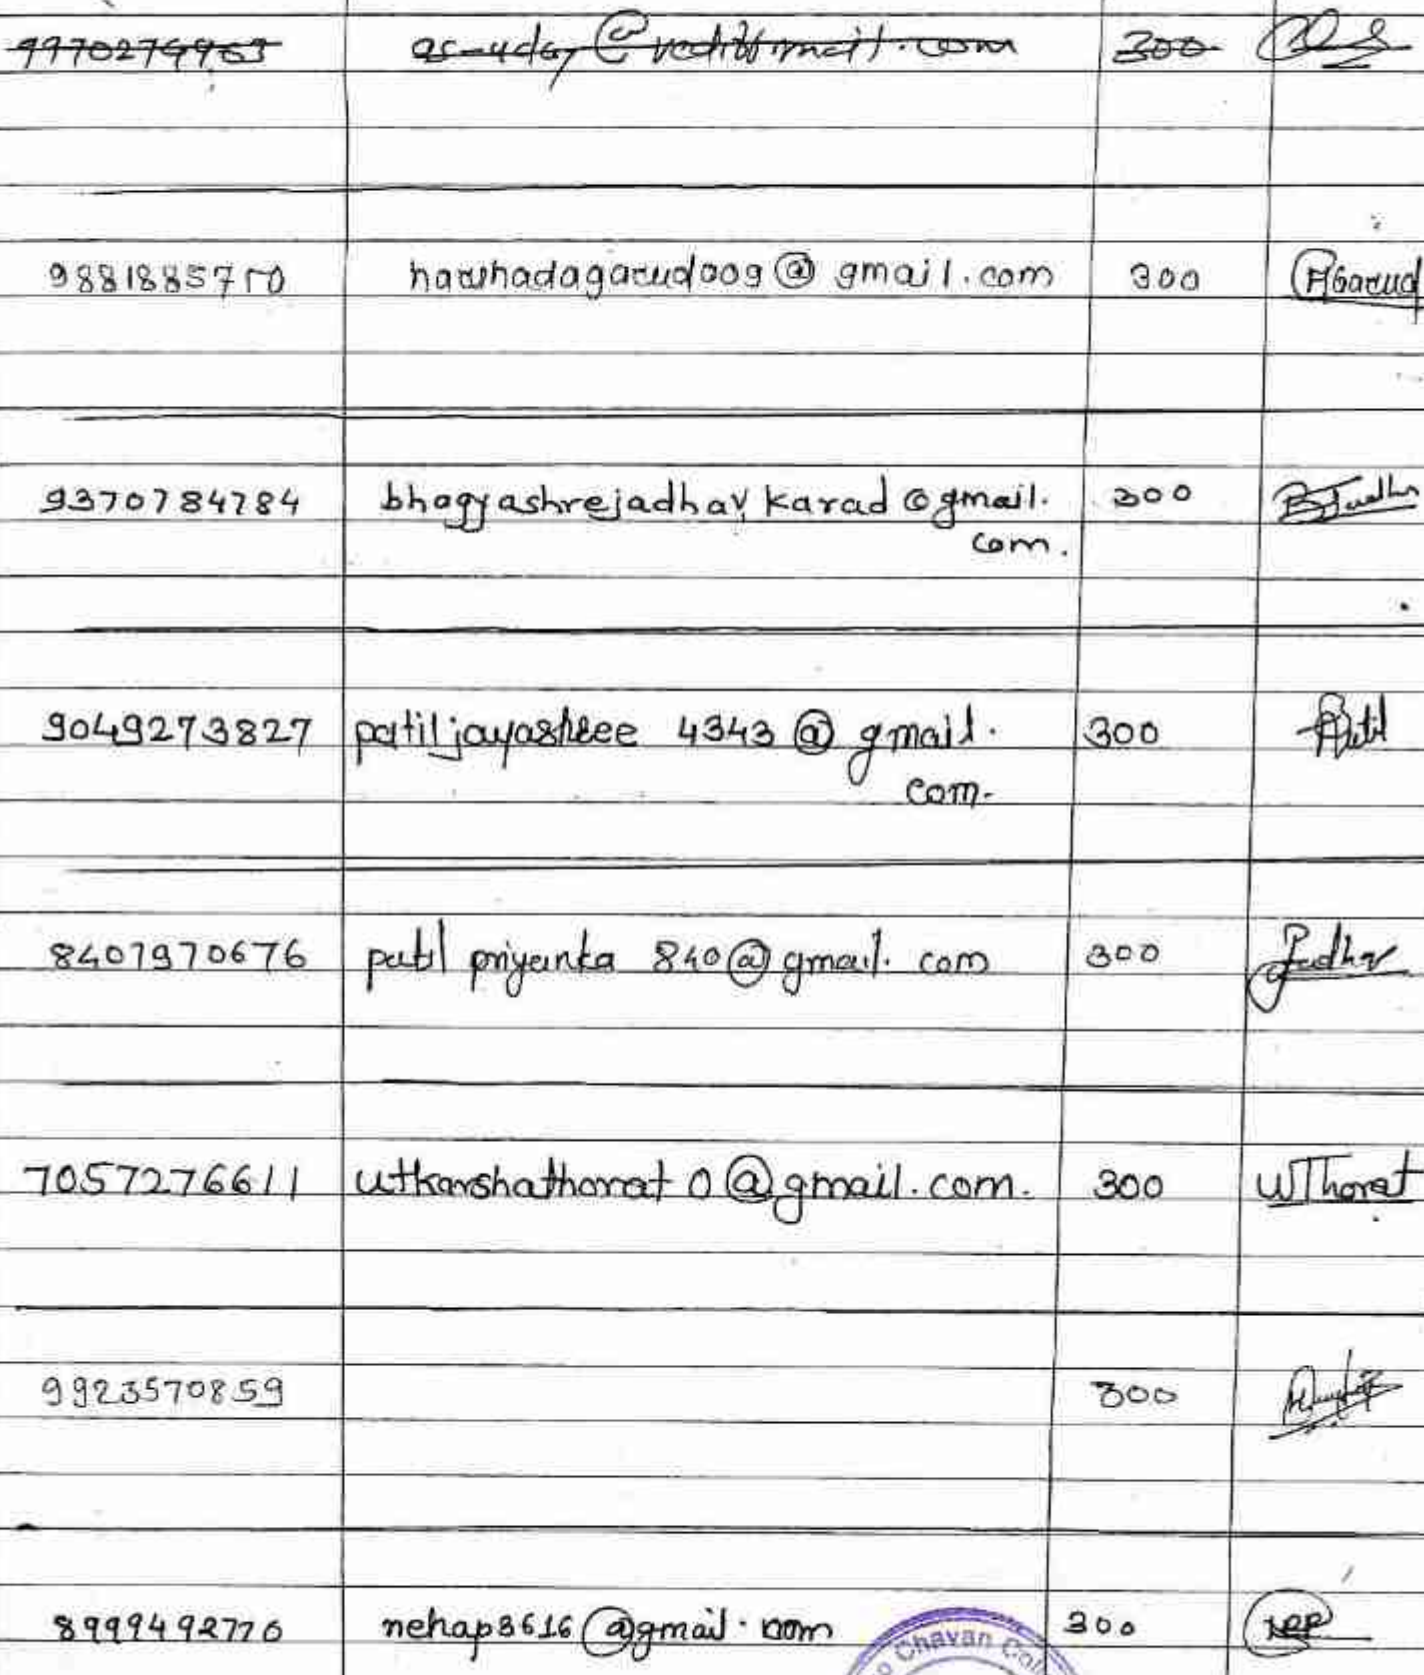 9881885710 harshadagarud009@gmail.com 300 HGarud
9370784784 bhagyashrejadhavkarad@gmail. 300 BJadhav
com.
9049273827 patiljayashree 4343@gmail. 300 Patil
com.
8407970676 patil priyanka 840@gmail.com 300 Jadhav
7057276611 utkarshathorat 0@gmail.com. 300 UThorat
9923570859 300
8999492770 nehap3616@gmail.com 300
Chavan